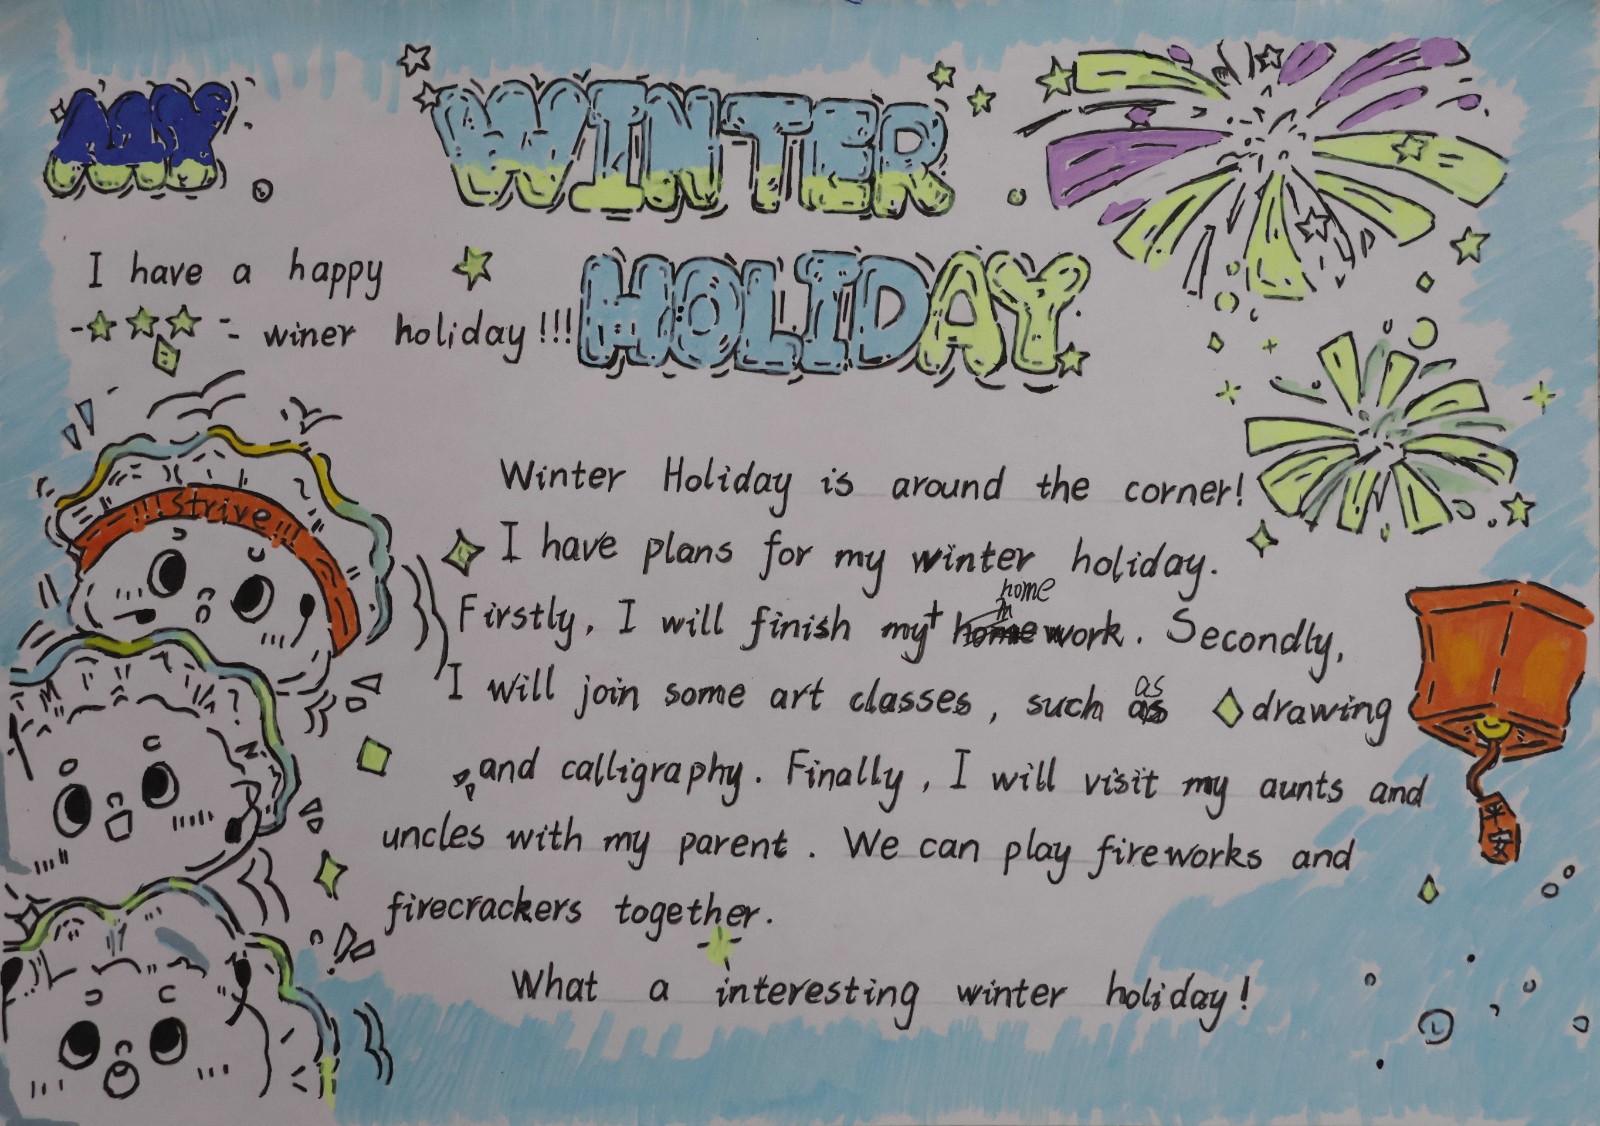 MY WINTER
HOLIDAY
I have a happy
winer holiday!!!
!!!strive!!!
Winter Holiday is around the corner!
I have plans for my winter holiday.
Firstly, I will finish my home work. Secondly,
I will join some art classes, such as drawing
and calligraphy. Finally, I will visit my aunts and
uncles with my parent. We can play fireworks and
firecrackers together.
What a interesting winter holiday!
平安